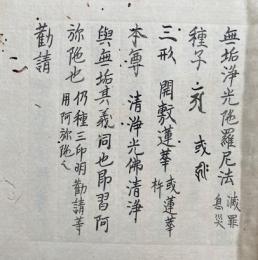 無垢淨光陀羅尼法 滅罪息災
種子 或
三形 開敷蓮華 或蓮華杵
本尊 清淨光佛清淨
與無垢其義同也即習阿
弥陀也 仍種三印明勸請等用阿弥陀之
勸請